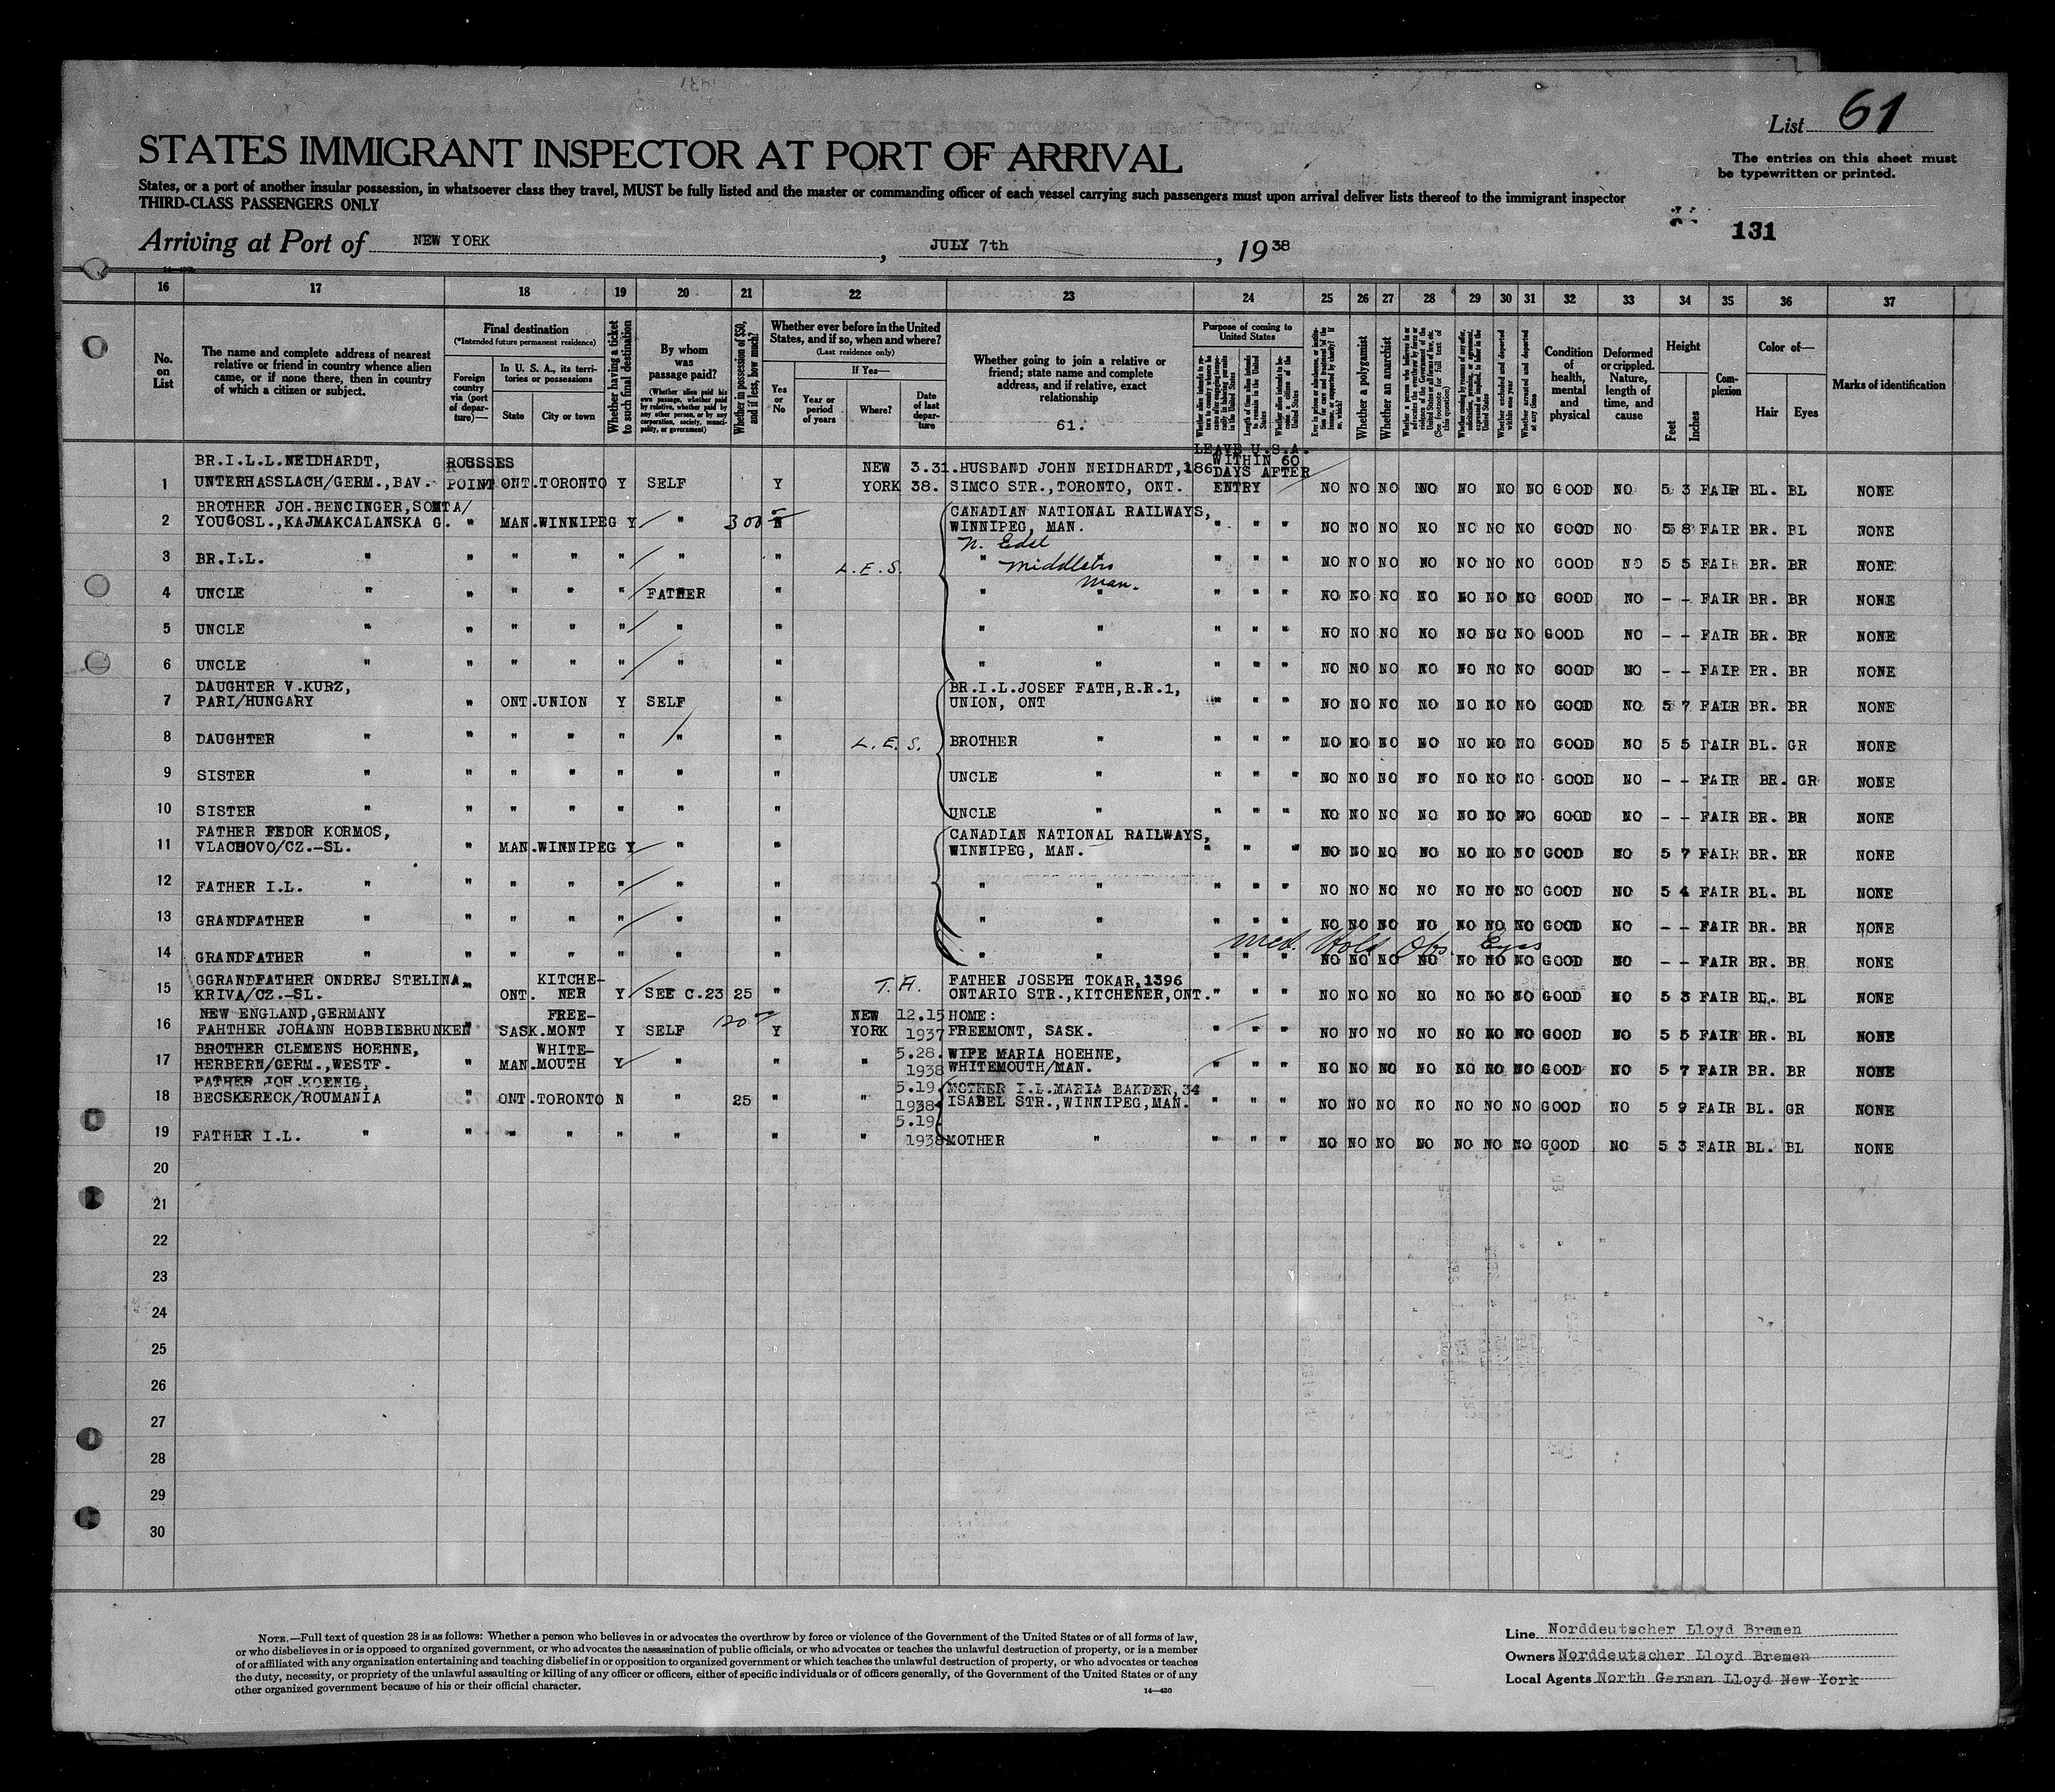 List 61
STATES IMMIGRANT INSPECTOR AT PORT OF ARRIVAL
The entries on this sheet must
be typewritten or printed.
States, or a port of another insular possession, in whatsoever class they travel, MUST be fully listed and the master or commanding officer of each vessel carrying such passengers must upon arrival deliver lists thereof to the immigrant inspector
THIRD-CLASS PASSENGERS ONLY
131
Arriving at Port of NEW YORK , JULY 7th , 1938
16 17 18 19 20 21 22 23 24 25 26 27 28 29 30 31 32 33 34 35 36 37
No. on List
The name and complete address of nearest relative or friend in country whence alien came, or if none there, then in country of which a citizen or subject.
Final destination
(*Intended future permanent residence)
Foreign country via (port of departure)—
In U. S. A., its territories or possessions
State City or town
Whether having a ticket to such final destination
By whom was passage paid?
(Whether alien paid his own passage, whether paid by relative, whether paid by any other person, or by any corporation, society, municipality, or government)
Whether in possession of $50, and if less, how much?
Whether ever before in the United States, and if so, when and where?
(Last residence only)
Yes or No
If Yes—
Year or period of years
Where?
Date of last departure
Whether going to join a relative or friend; state name and complete address, and if relative, exact relationship
61.
Purpose of coming to United States
Whether a polygamist
Whether an anarchist
Condition of health, mental and physical
Deformed or crippled. Nature, length of time, and cause
Height
Feet Inches
Complexion
Color of—
Hair Eyes
Marks of identification
LEAVE U.S.A.
WITHIN 60
DAYS AFTER
ENTRY
BR.I.L.L.NEIDHARDT, ROUSSES NEW 3.31. HUSBAND JOHN NEIDHARDT,186
1 UNTERHASSLACH/GERM.,BAV. POINT ONT. TORONTO Y SELF Y YORK 38. SIMCO STR.,TORONTO, ONT. NO NO NO NO NO NO NO GOOD NO 5 3 FAIR BL. BL NONE
BROTHER JOH.BENCINGER,SONTA/ CANADIAN NATIONAL RAILWAYS,
2 YOUGOSL.,KAJMAKCALANSKA G. " MAN. WINNIPEG Y " 300 N WINNIPEG, MAN. " " " NO NO NO NO NO NO NO GOOD NO 5 8 FAIR BR. BL NONE
N. Edel
3 BR.I.L. " " " " " " " " " " " NO NO NO NO NO NO NO GOOD NO 5 5 FAIR BR. BR NONE
L.E.S. Man.
4 UNCLE " " " " " FATHER " " " " " " NO NO NO NO NO NO NO GOOD NO - - FAIR BR. BR NONE
5 UNCLE " " " " " " " " " " " " NO NO NO NO NO NO NO GOOD NO - - FAIR BR. BR NONE
6 UNCLE " " " " " " " " " " " " NO NO NO NO NO NO NO GOOD NO - - FAIR BR. BR NONE
DAUGHTER V.KURZ, BR.I.L.JOSEF FATH,R.R.1,
7 PARI/HUNGARY " ONT. UNION Y SELF " UNION, ONT " " " NO NO NO NO NO NO NO GOOD NO 5 7 FAIR BR. BR NONE
8 DAUGHTER " " " " " " " L.E.S. BROTHER " " " " NO NO NO NO NO NO NO GOOD NO 5 5 FAIR BL. GR NONE
9 SISTER " " " " " " " UNCLE " " " " NO NO NO NO NO NO NO GOOD NO - - FAIR BR. GR NONE
10 SISTER " " " " " " " UNCLE " " " " NO NO NO NO NO NO NO GOOD NO - - FAIR BR. BR NONE
FATHER FEDOR KORMOS, CANADIAN NATIONAL RAILWAYS,
11 VLACHOVO/CZ.-SL. " MAN. WINNIPEG Y " " WINNIPEG, MAN. " " " NO NO NO NO NO NO NO GOOD NO 5 7 FAIR BR. BR NONE
12 FATHER I.L. " " " " " " " " " " " " NO NO NO NO NO NO NO GOOD NO 5 4 FAIR BL. BL NONE
13 GRANDFATHER " " " " " " " " " " " " NO NO NO NO NO NO NO GOOD NO - - FAIR BR. BR NONE
Med. Hold Obs. Eyes
14 GRANDFATHER " " " " " " " " " " " " NO NO NO NO NO NO NO GOOD NO - - FAIR BR. BR NONE
GGRANDFATHER ONDREJ STELINA, KITCHE- FATHER JOSEPH TOKAR,1396
15 KRIVA/CZ.-SL. " ONT. NER Y SEE C.23 25 " ONTARIO STR.,KITCHENER,ONT. " " " NO NO NO NO NO NO NO GOOD NO 5 3 FAIR BL. BL NONE
NEW ENGLAND,GERMANY FREE- NEW 12.15 HOME:
16 FAHTHER JOHANN HOBBIEBRUNKEN " SASK. MONT Y SELF 120 Y YORK 1937 FREEMONT, SASK. " " " NO NO NO NO NO NO NO GOOD NO 5 5 FAIR BR. BL NONE
BROTHER CLEMENS HOEHNE, WHITE- 5.28. WIFE MARIA HOEHNE,
17 HERBERN/GERM.,WESTF. " MAN. MOUTH Y " " " 1938 WHITEMOUTH/MAN. " " " NO NO NO NO NO NO NO GOOD NO 5 7 FAIR BR. BR NONE
FATHER JOH.KOENIG, 5.19. MOTHER I.L.MARIA BAKDER,34
18 BECSKERECK/ROUMANIA " ONT. TORONTO N " 25 " " 1938 ISABEL STR.,WINNIPEG,MAN. " " " NO NO NO NO NO NO NO GOOD NO 5 9 FAIR BL. GR NONE
5.19.
19 FATHER I.L. " " " " " " " " 1938 MOTHER " " " " NO NO NO NO NO NO NO GOOD NO 5 3 FAIR BL. BL NONE
20
21
22
23
24
25
26
27
28
29
30
NOTE.—Full text of question 28 is as follows: Whether a person who believes in or advocates the overthrow by force or violence of the Government of the United States or of all forms of law,
or who disbelieves in or is opposed to organized government, or who advocates the assassination of public officials, or who advocates or teaches the unlawful destruction of property, or is a member
of or affiliated with any organization entertaining and teaching disbelief in or opposition to organized government or which teaches the unlawful destruction of property, or who advocates or teaches
the duty, necessity, or propriety of the unlawful assaulting or killing of any officer or officers, either of specific individuals or of officers generally, of the Government of the United States or of any
other organized government because of his or their official character.
14—430
Line Norddeutscher Lloyd Bremen
Owners Norddeutscher Lloyd Bremen
Local Agents North German Lloyd New York